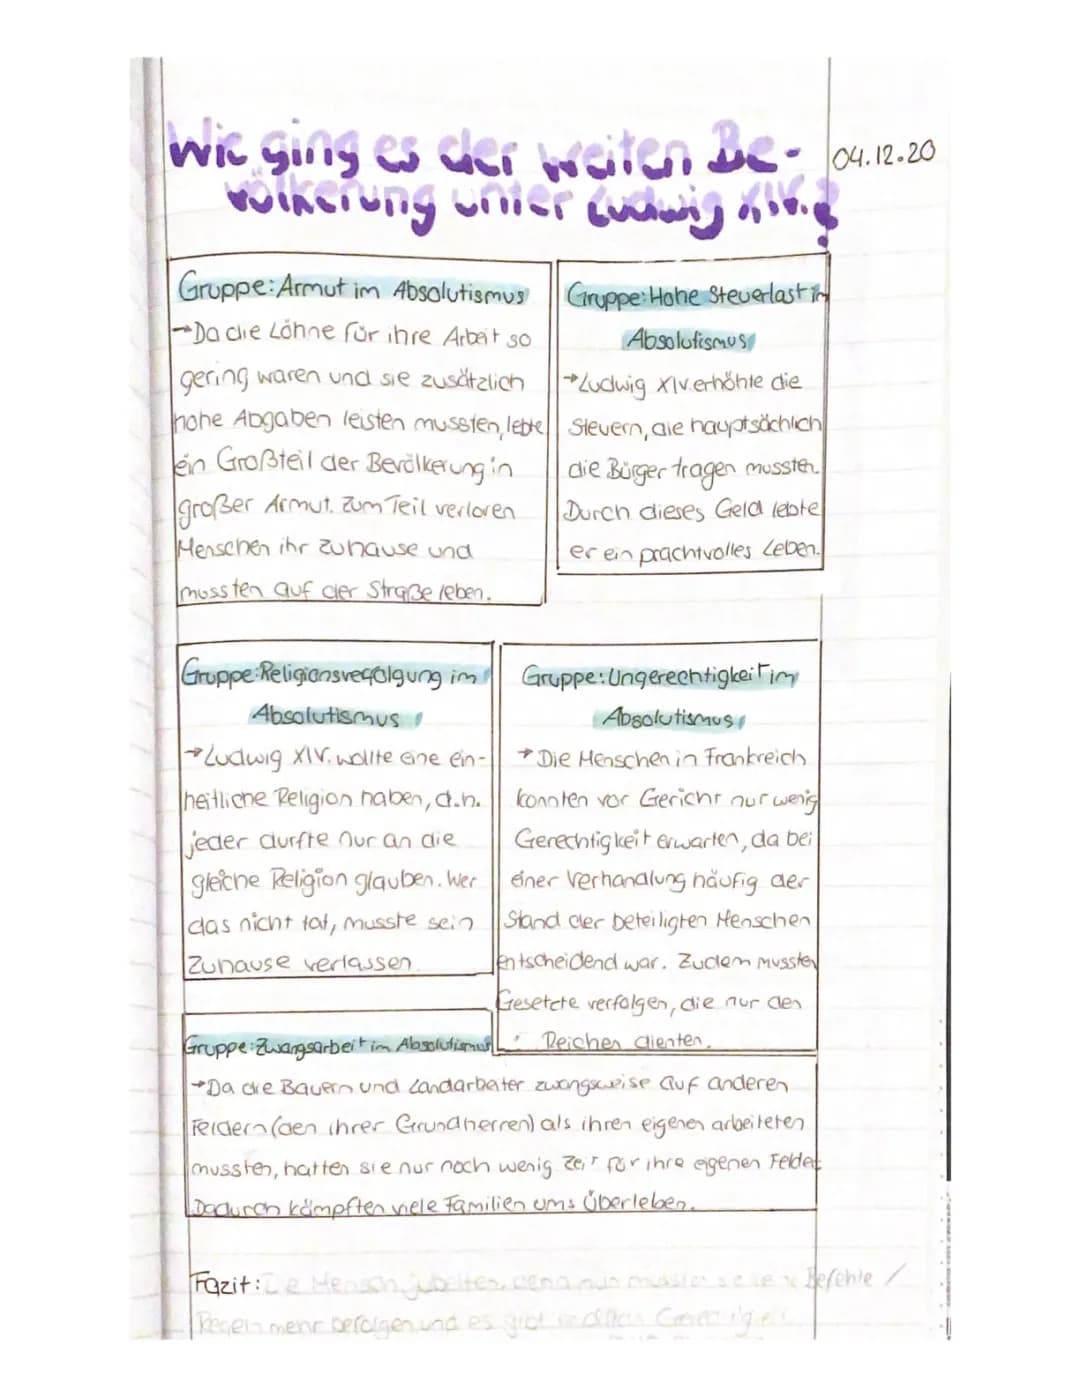 Wie ging es der weiten Be-
völkerung unter Ludwig XIV.?
04.12.20
Gruppe: Armut im Absolutismus
→Da die Löhne für ihre Arbeit so
gering waren und sie zusätzlich
hohe Abgaben leisten mussten, lebte
ein Großteil der Bevölkerung in
großer Armut. Zum Teil verloren
Menschen ihr Zuhause und
mussten auf der Straße leben.
Gruppe: Hohe Steuerlast im
Absolutismus
→Ludwig XIV. erhöhte die
Steuern, die hauptsächlich
die Bürger tragen mussten.
Durch dieses Geld lebte
er ein prachtvolles Leben.
Gruppe: Religionsverfolgung im
Absolutismus
→Ludwig XIV. wollte eine ein-
heitliche Religion haben, d.h.
jeder durfte nur an die
gleiche Religion glauben. Wer
das nicht tat, musste sein
Zuhause verlassen.
Gruppe: Ungerechtigkeit im
Absolutismus
→Die Menschen in Frankreich
konnten vor Gericht nur wenig
Gerechtigkeit erwarten, da bei
einer Verhandlung häufig der
Stand der beteiligten Menschen
entscheidend war. Zudem mussten
Gesetzte verfolgen, die nur den
Reichen dienten.
Gruppe: Zwangsarbeit im Absolutismus
→Da die Bauern und Landarbeiter zwangsweise auf anderen
Feldern (den ihrer Grundherren) als ihren eigenen arbeiteten
mussten, hatten sie nur noch wenig Zeit für ihre eigenen Felder.
Dadurch kämpften viele Familien ums Überleben.
Fazit: Die Menschen jubelten, denn nun mussten sie Befehle /
Regeln mehr befolgen und es gibt